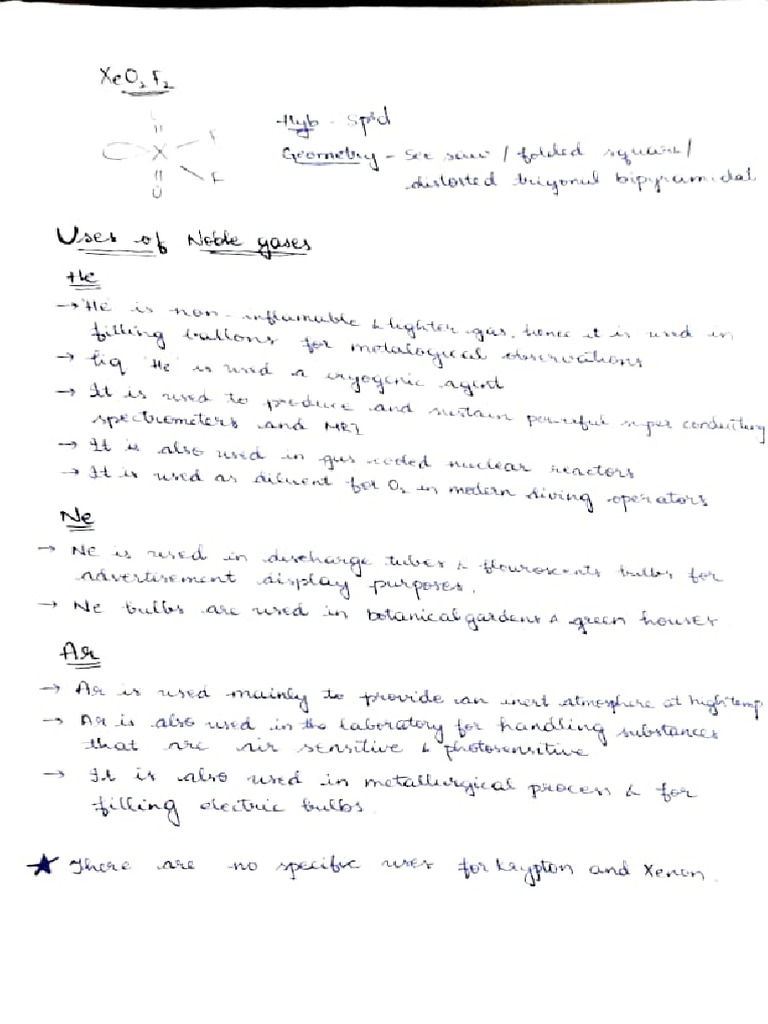 XeO2F2
Hyb - sp3d
Geometry - See saw / folded square /
distorted triyonul bipyramidal
F
X
F
O
Uses of Noble gases
He
→ He is non-inflamable & lighter gas, hence it is used in
filling ballons for metalogical observations
→ liq 'He' is used a cryogenic agent
→ It is used to produce and sustain powerful super conducting
spectrometers and MRI
→ It is also used in gas cooled nuclear reactors
→ It is used as diluent for O2 in modern diving operators
Ne
→ Ne is used in discharge tubes & flouroscents bulbs for
advertisement display purposes.
→ Ne bulbs are used in botanical gardens & green houses
Ar
→ Ar is used mainly to provide an inert atmosphere at high temp
→ Ar is also used in the laboratory for handling substances
that are air sensitive & photosensitive
→ It is also used in metallurgical process & for
filling electric bulbs.
★ There are no specific uses for Krypton and Xenon.